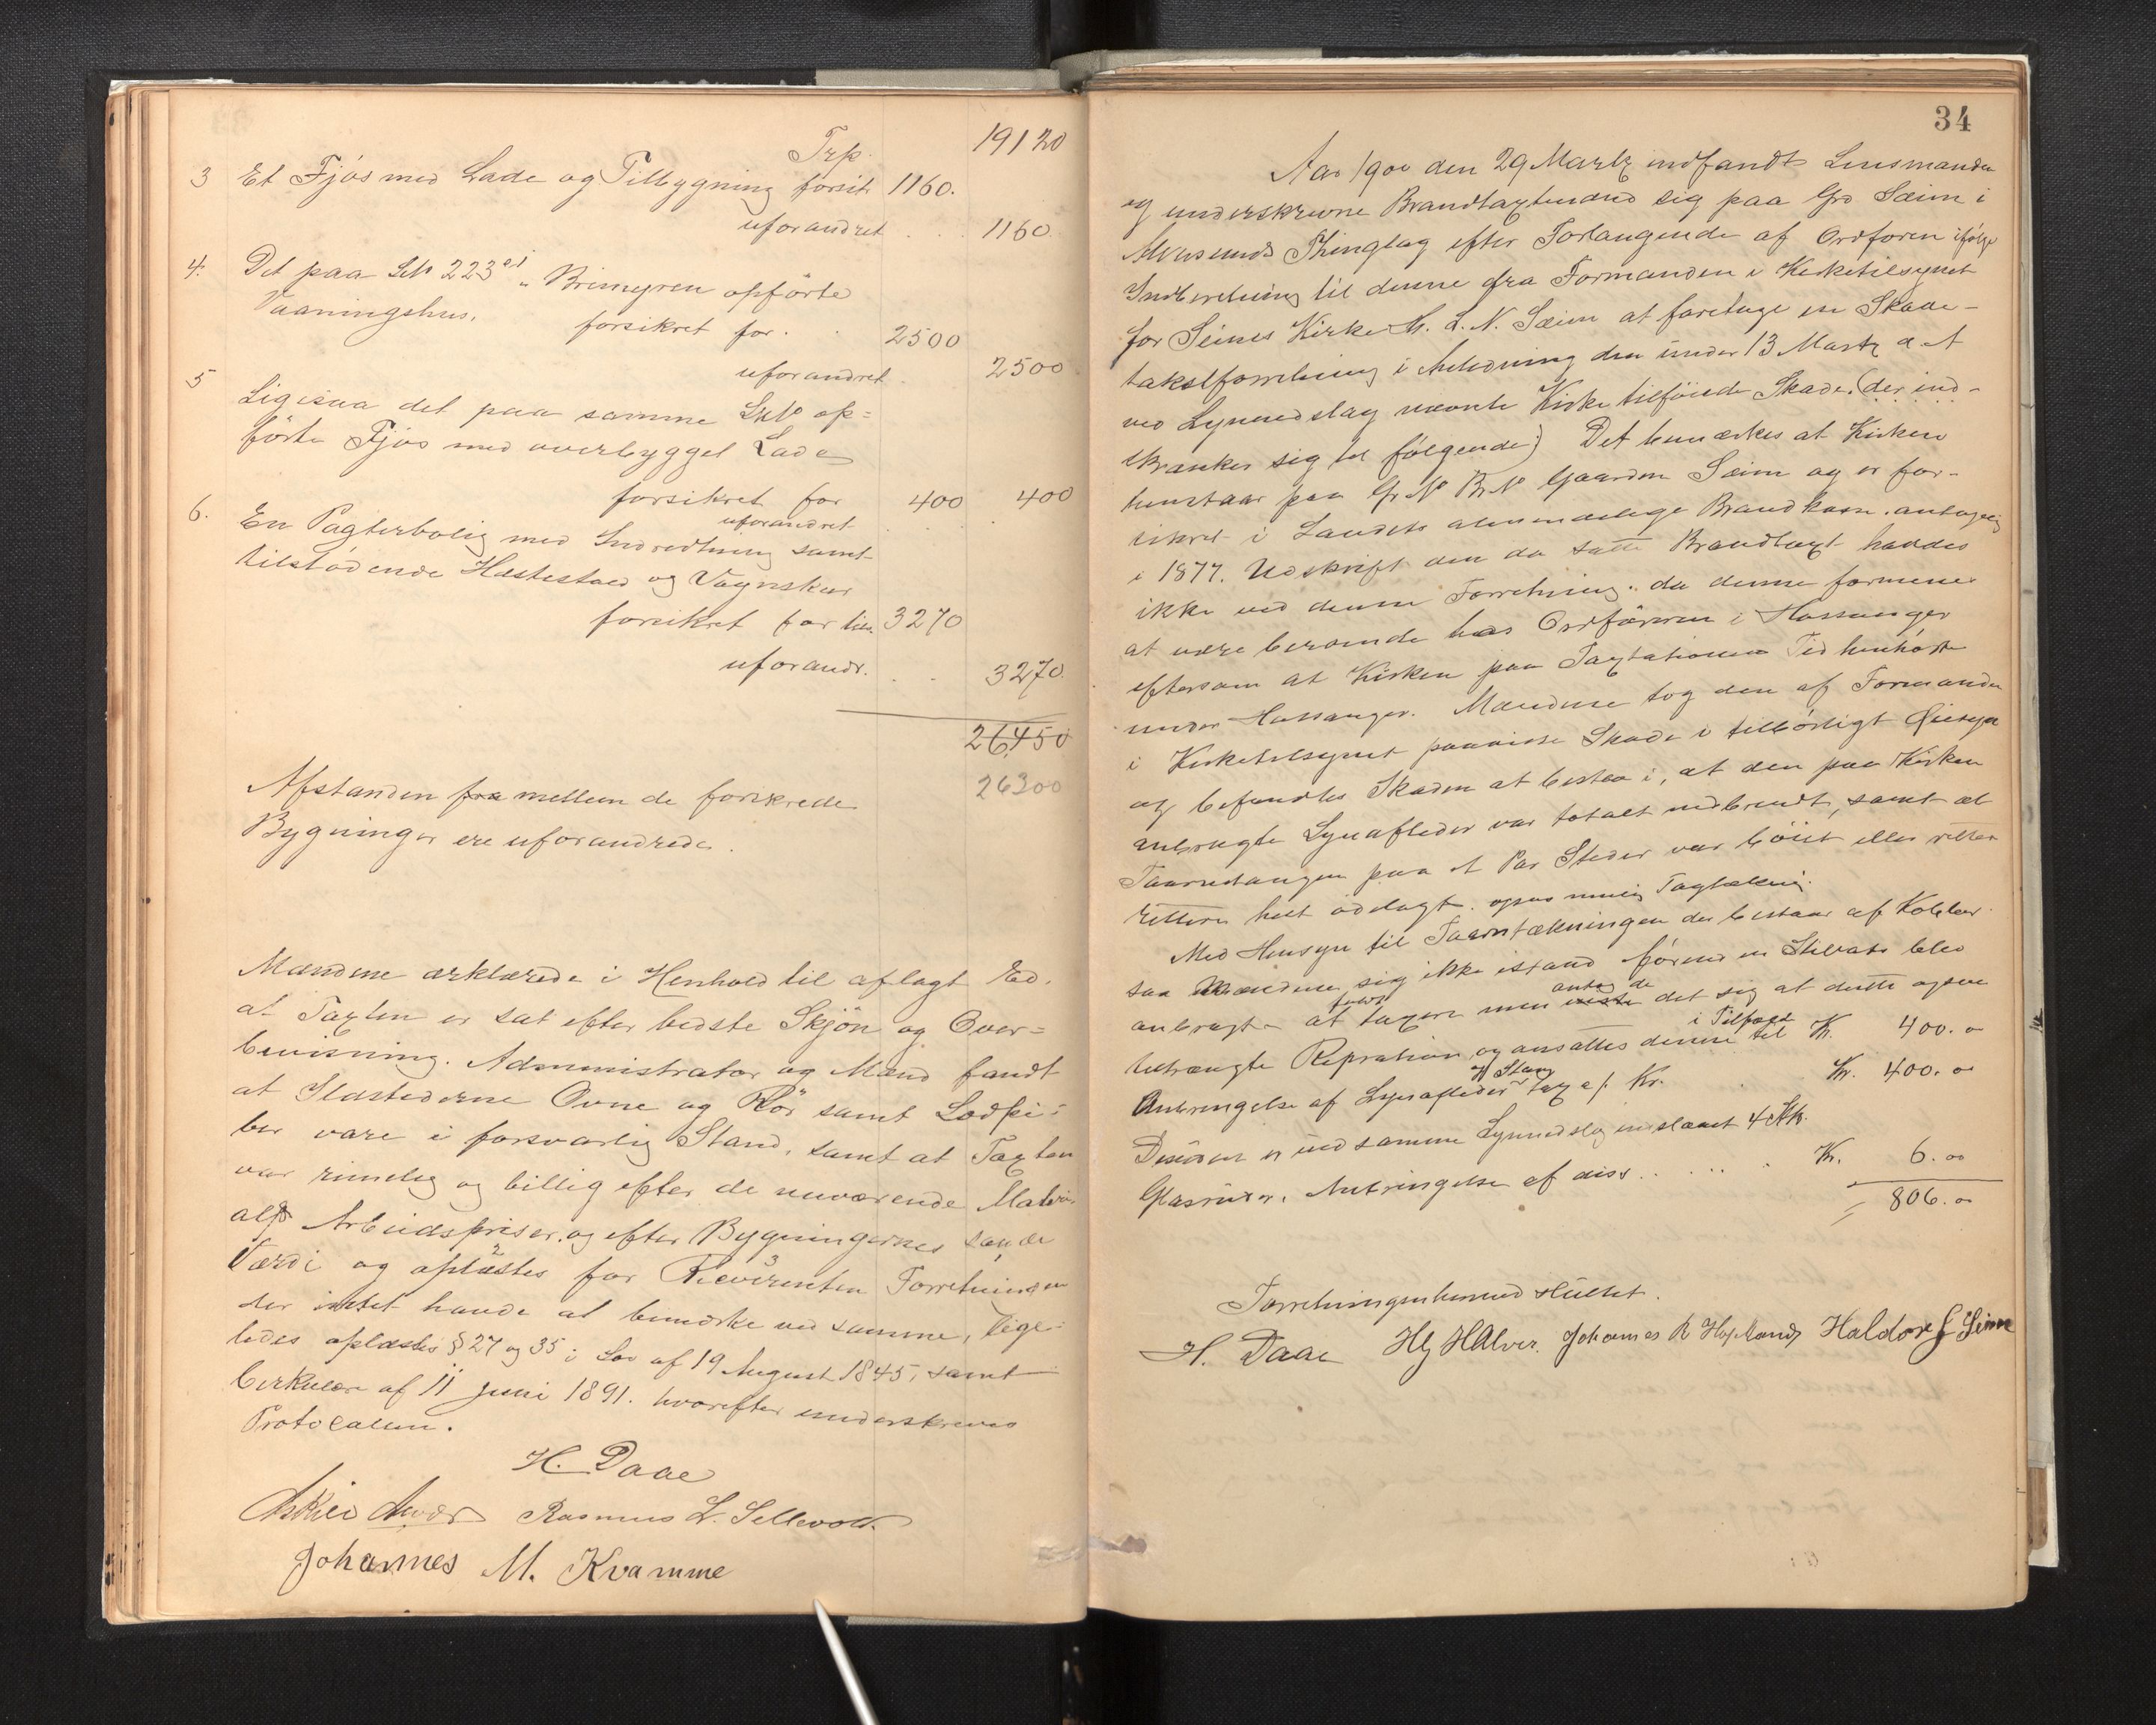 Trp. 19120
3 Et Fjøs med Lade og Tilbygning forsik 1160.
uforandret . . 1160
4. Det paa LNo 223 a1 „ Brimyren opførte
Vaaningshus.
forsikret for . . 2500
uforandret . 2500
5 Ligesaa det paa samme LNo op=
førte Fjøs med overbygget Lade
forsikret for 400 400
uforandret
6. En Pagterbolig med Indredtning samt
tilstødende Hestestald og Vognskur
forsikret for till. 3270
uforandr. . . 3270.
26,450
26300
Afstanden fra mellem de forsikrede
Bygninger ere uforandrede.
Mændene erklærede i Henhold til aflagt Ed.
at Taxten er sat efter bedste Skjøn og Over=
bevisning. Administrator og Mænd fandt
at Ildstederne Ovne og Rør samt Lodpi=
ber vare i forsvarlig Stand, samt at Taxten
var rimelig og billig efter de nuværende Matri-
alp Arbeidspriser og efter Bygningernes sande
Værdi og oplæstes for Reqvirenten Forretningen
der intet havde at bemærke ved samme, lige=
ledes oplæstes § 27 og 35 i Lov af 19 August 1845, samt
Cirkulære af 11 Juni 1891. hvorefter underskreves
Protocallen.
H. Daae
Askild Rasmus L. Sellevold.
Johannes M. Kvamme
34
Aar 1900 den 29 Martz indfandt Lensmanden
og underskrevne Brandtaxtmænd sig paa Grd Sæim i
Alversunds Thinglag efter Forlangende af Ordføren ifølge
Indberetning til denne fra Formanden i Kirketilsynet
for Seims Kirke Hr. L. N. Sæim at foretage en Skade-
takstforretning i Anledning den under 13 Martz d. A
ved Lynnedslag nævnte Kirke tilføiede Skade. (der ind-
skrænker sig til følgende) Det bemærkes at Kirken
henstaar paa Gr No Br No Gaarden Sæim og er for-
sikret i Landets almindelige Brandkasse. antagelig
i 1877. Udskrift den da satte Brandtaxt havdes
ikke ved denne Forretning. da denne formenes
at være beroende hos Ordføreren i Hossanger
eftersom at Kirken paa Taxtationens Tid henhørte
under Hossanger. Mændene tog den af Formanden
i Kirketilsynet paaviste Skade i tilbørligt Øiesyn
og befandtes Skaden at bestaa i, at den paa Kirken
anbragte Lynafleder var totalt nedbrændt, samt at
Taarnstangen paa et Par Steder var bøiet eller rettere
rettere helt ødelagt. ogsaa Tagtækning.
Med Hensyn til Taarntækningen der bestaar af Kobber
saa Mændene sig ikke istand førend en Stilads blev
anbragt at taxere men antog de det sig at dette ogsaa
tiltrængte Repration og ansattes denne i Tilfæld til Kr. 400.00
Anbringelse af Lynafleder og Stang tax af. Kr. . Kr. 400.00
Desuden er ved samme Lynnedslag indslaaet 4 Stk.
Glasruder. Anbringelse af diss . . . . . . Kr. 6.00
= 806.00
Forretningen hermed sluttet.
H. Daae Johannes R Haldor Seim